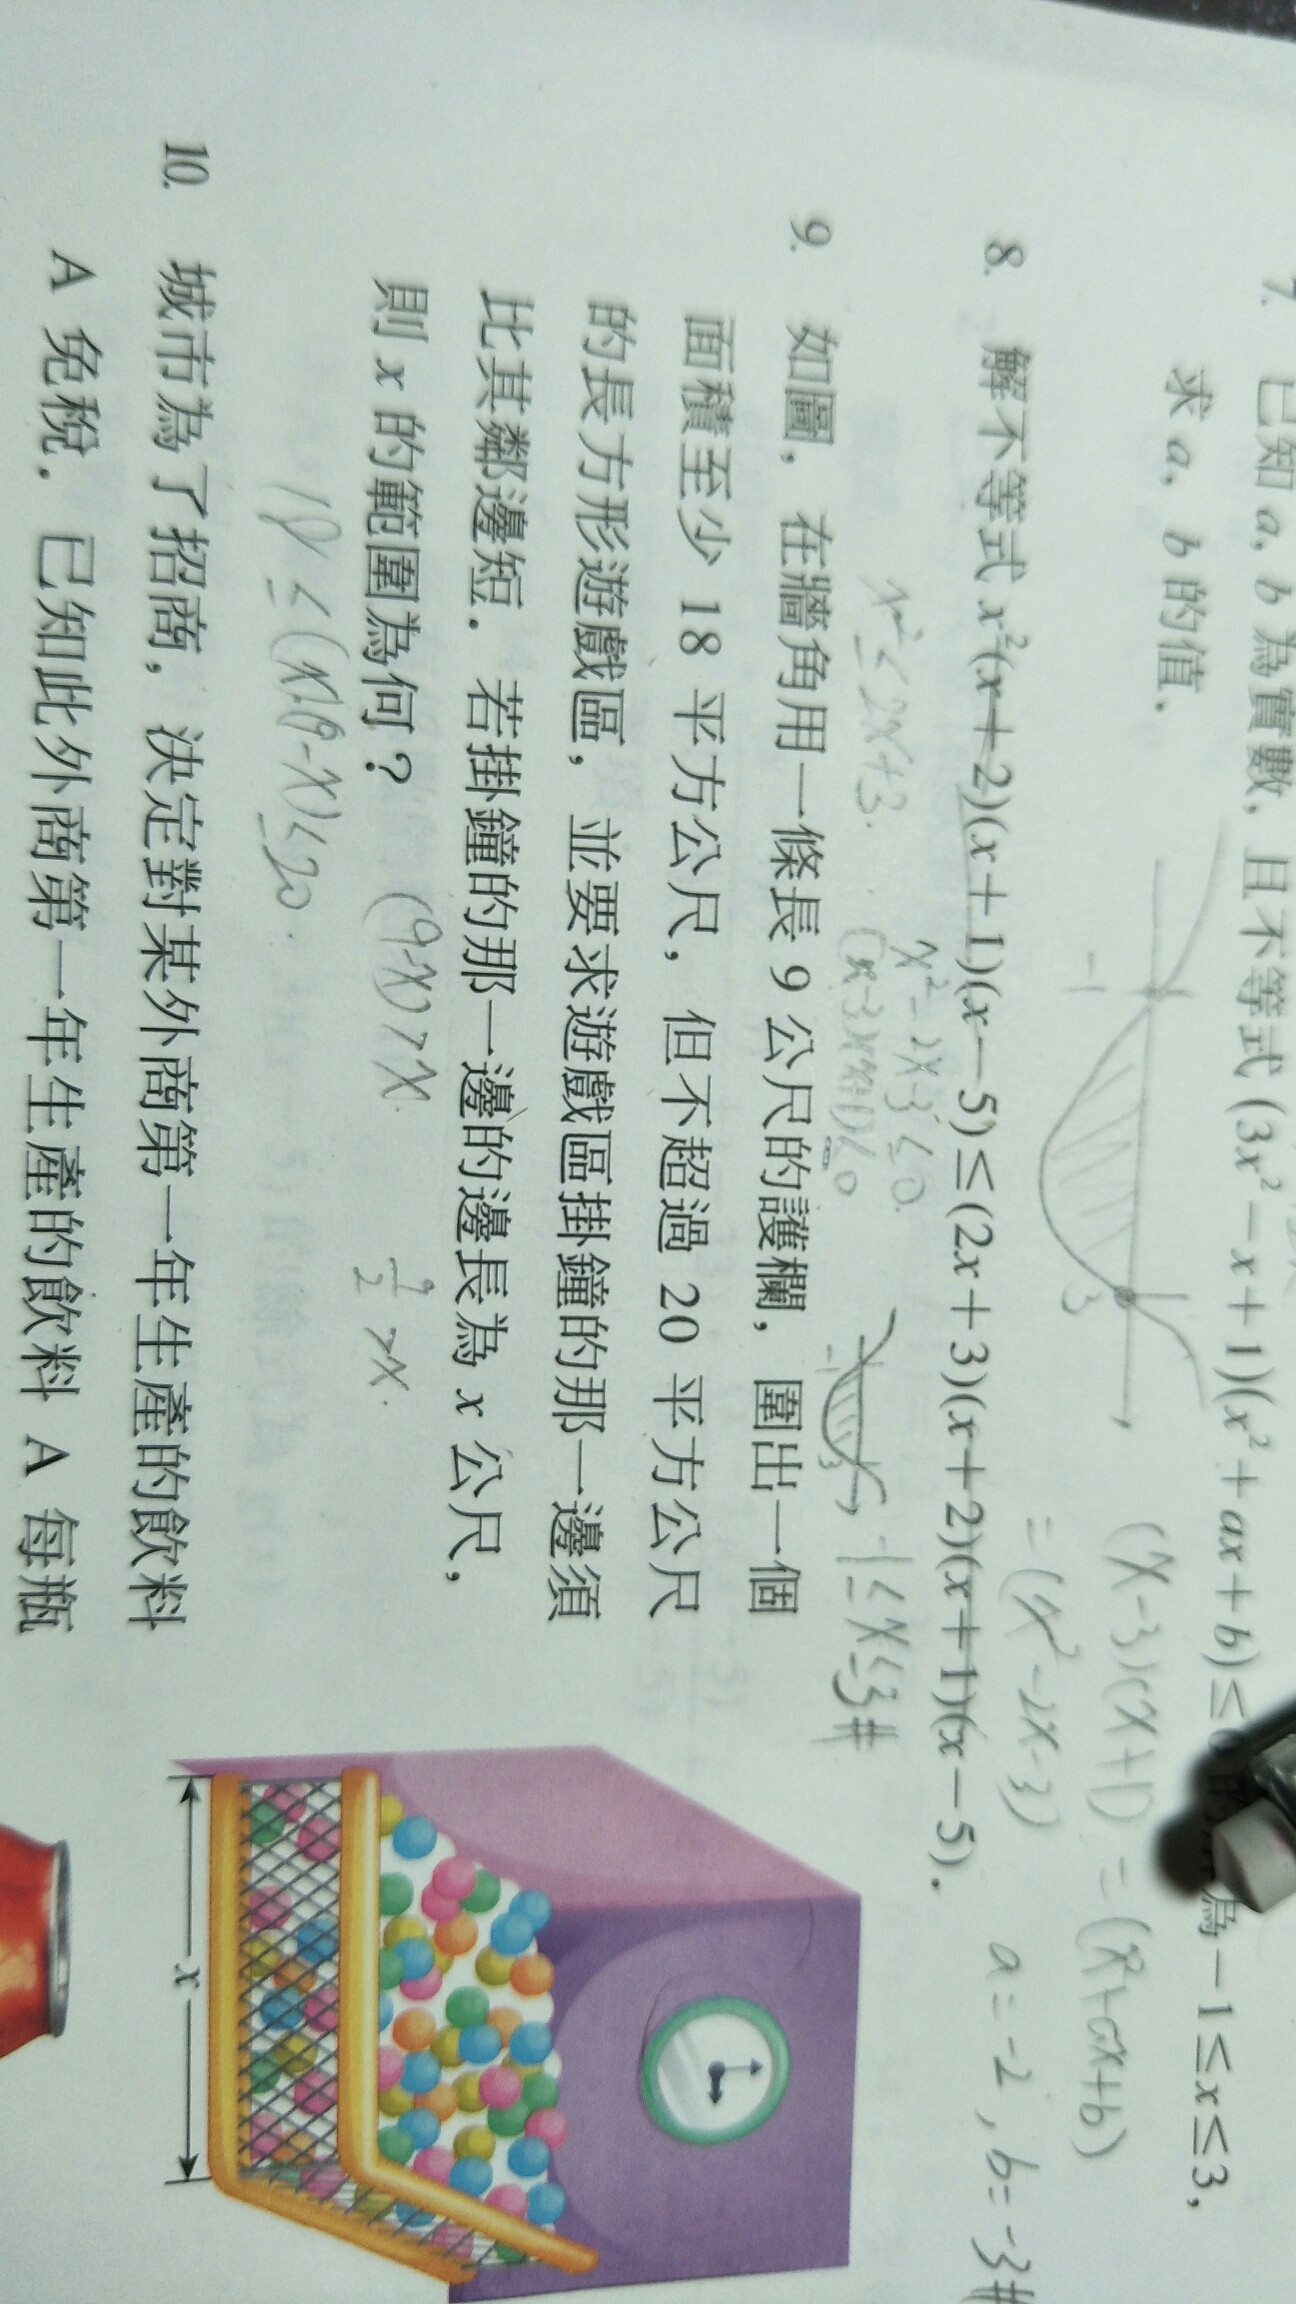 7. 已知 a, b 為實數, 且不等式 (3x² - x + 1)(x² + ax + b) ≤ 為 -1 ≤ x ≤ 3,
求 a, b 的值.
(x-3)(x+1) = (x²+ax+b)
= (x²-2x-3)
a=-2, b=-3#
-1 3
8. 解不等式 x²(x+2)(x+1)(x-5) ≤ (2x+3)(x+2)(x+1)(x-5).
x² ≤ 2x+3.
x²-2x-3 ≤ 0.
(x-3)(x+1) ≤ 0
-1 3
-1 ≤ x ≤ 3#
9. 如圖, 在牆角用一條長 9 公尺的護欄, 圍出一個
面積至少 18 平方公尺, 但不超過 20 平方公尺
的長方形遊戲區, 並要求遊戲區掛鐘的那一邊須
比其鄰邊短. 若掛鐘的那一邊的邊長為 x 公尺,
則 x 的範圍為何?
(9-x) > x.
9/2 > x.
18 ≤ (x)(9-x) ≤ 20.
x
10. 城市為了招商, 決定對某外商第一年生產的飲料
A 免稅. 已知此外商第一年生產的飲料 A 每瓶